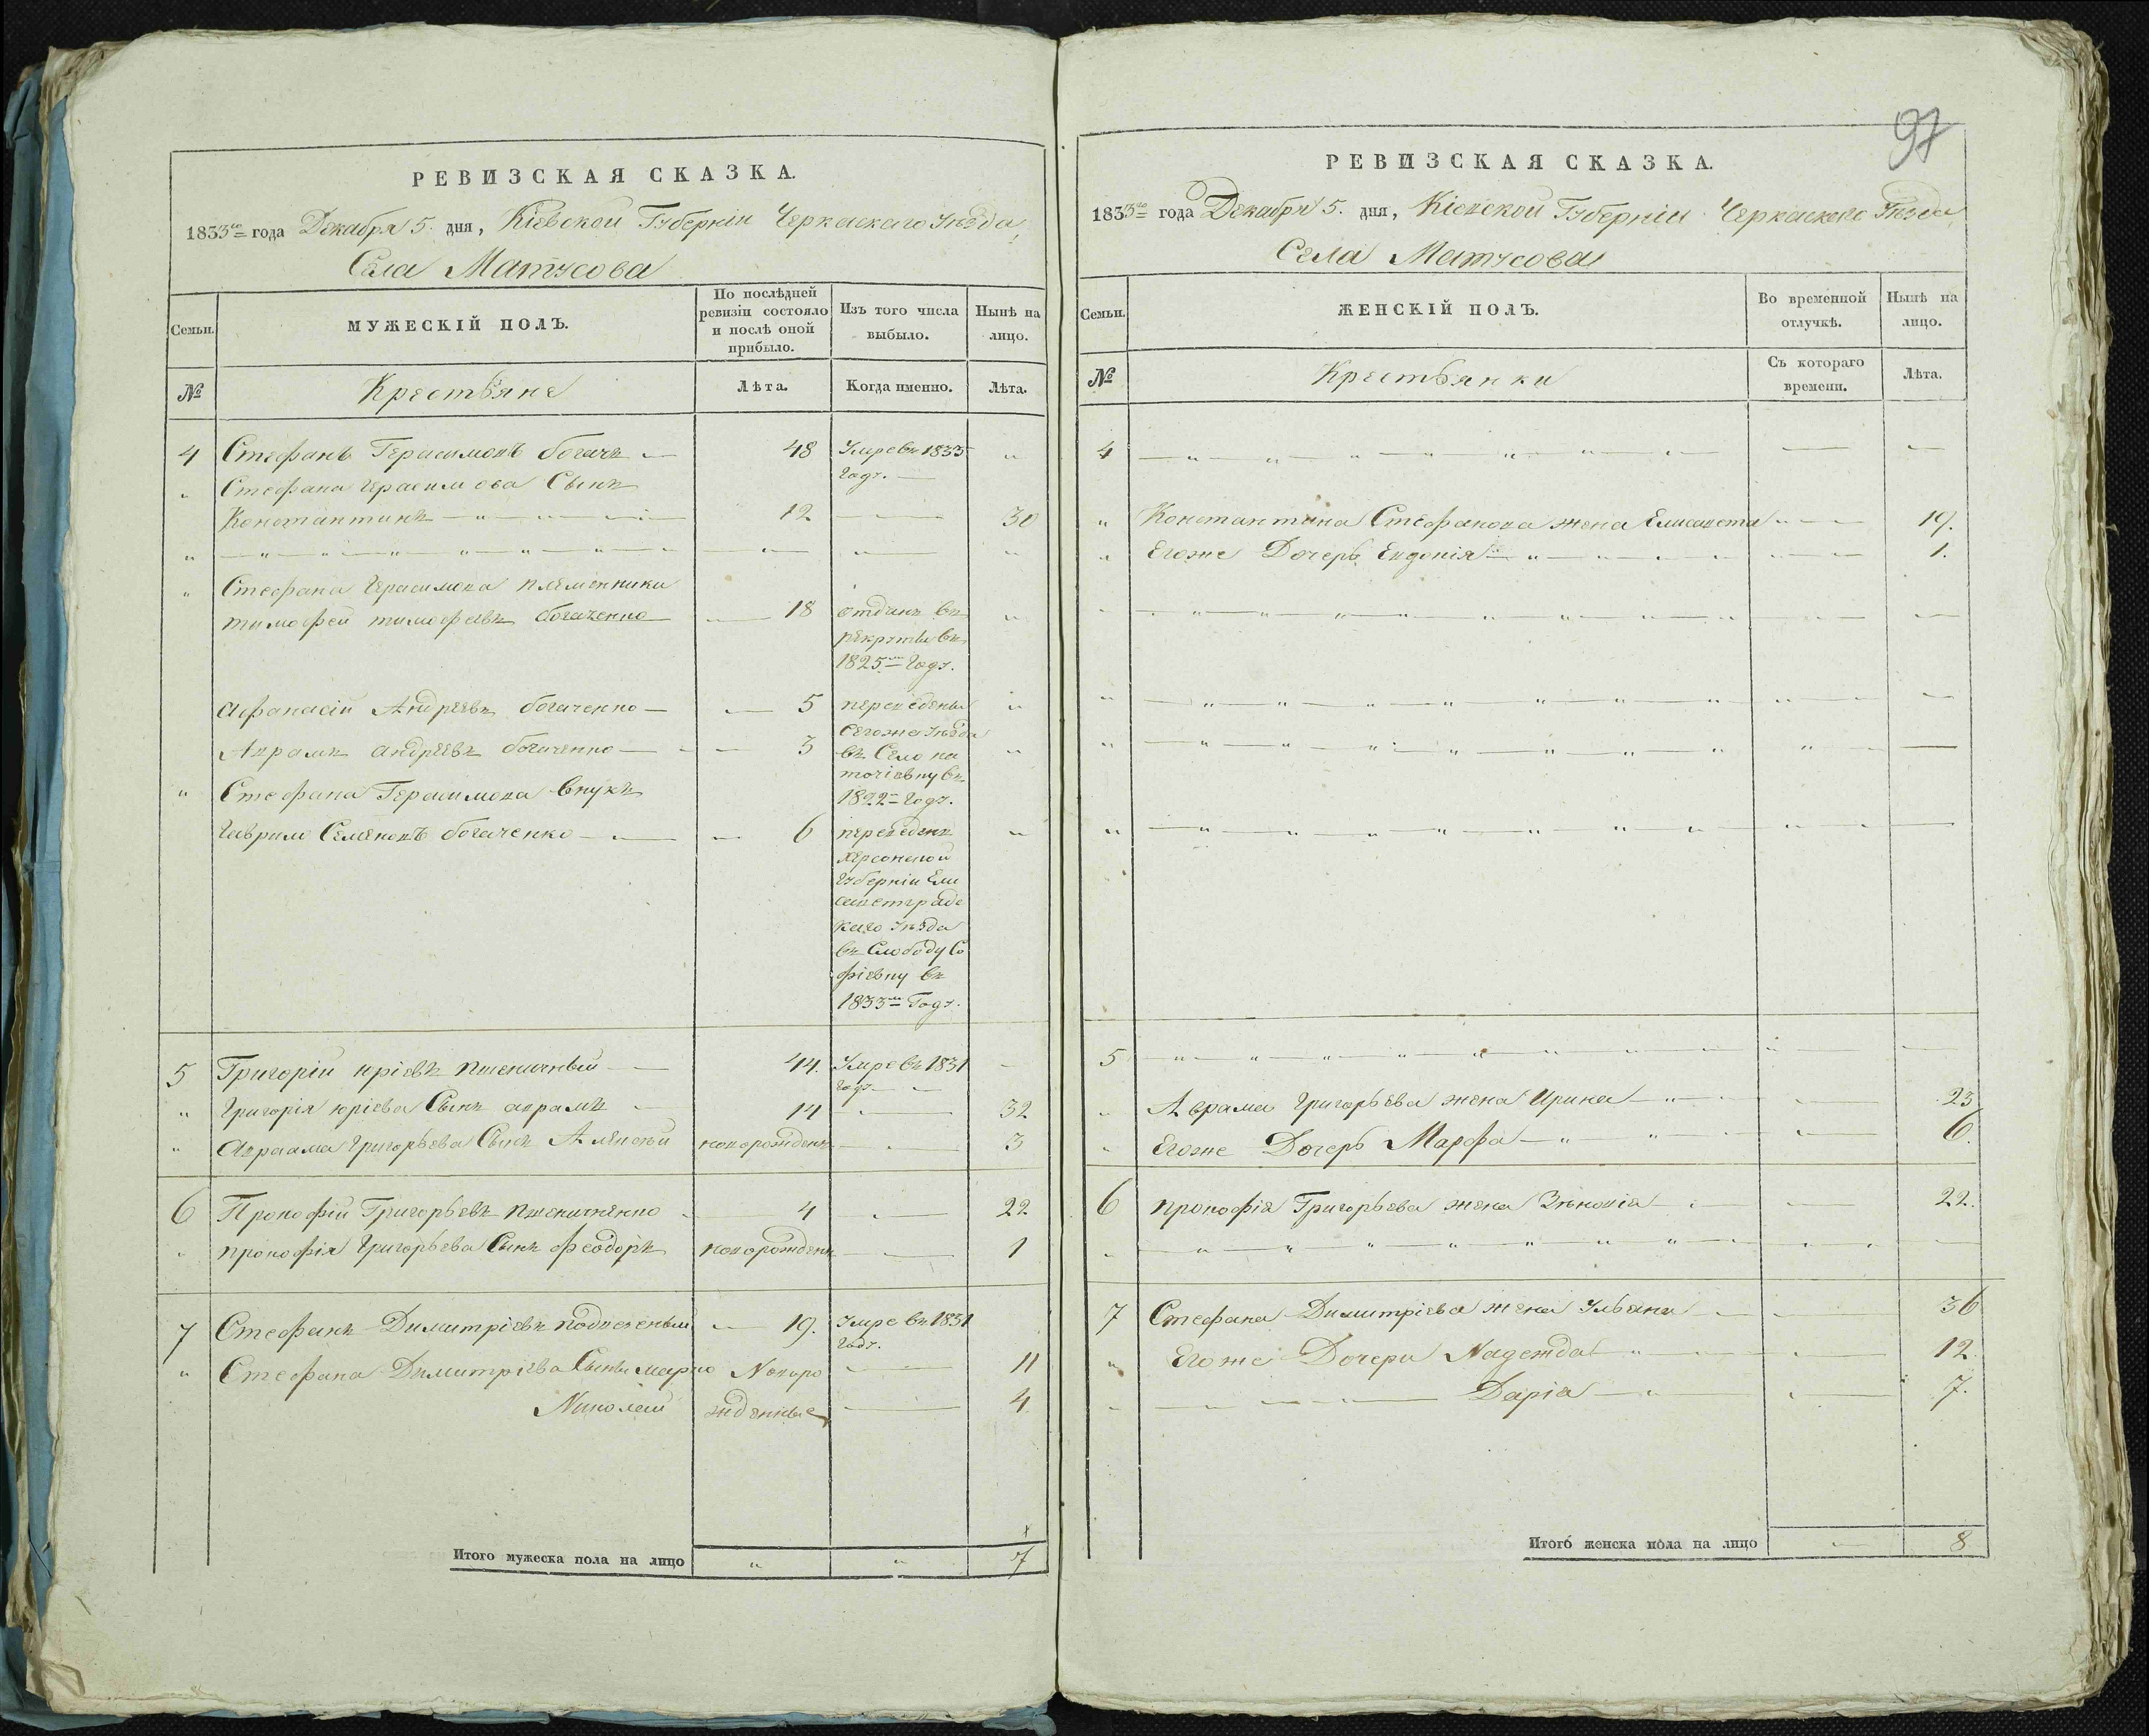 РЕВИЗСКАЯ СКАЗКА.
1833го года Декабря 5. дня, Кіевской Губерніи Черкаскаго Уѣзда,
Села Матусова
Семьи.
МУЖЕСКІЙ ПОЛЪ.
По послѣдней ревизіи состояло и послѣ оной прибыло.
Изъ того числа выбыло.
Нынѣ на лицо.
№
Крестьяне
Лѣта.
Когда именно.
Лѣта.
4 Стефанъ Герасимовъ богачъ — 48 Умре въ 1833 "
" Стефана Герасимова Сынъ году. —
Константинъ — " — 12 — 30
" — " — " — " — " — " — " — "
" Стефана Герасимова племенники
тимофей тимофѣевъ богаченко — 18 отданъ въ "
рекруты въ
1825мъ году.
Афанасій Андрѣевъ богаченко — 5 переведены "
сегоже Уѣзда
Аврамъ андрѣевъ богаченко — 3 въ Село на "
точіевну въ
" Стефана Герасимова внукъ 1822м году.
Гаврило Семеновъ богаченко — " 6 переведенъ "
херсонской
Губерніи Ели
саветградс
каго Уѣзда
въ Слободу Со
фіевну въ
1833мъ Году.
5 Григорій юріевъ пшеничный — 44. Умре въ 1831 —
году —
" Григорія юріева Сынъ аврамъ — 14 — 32
" Авраама Григорьева Сынъ Алексѣй новорожденъ — 3
6 Прокофій Григорьевъ пшениченко — 4 — 22
" прокофія Григорьева Сынъ феодоръ новорожденъ — 1
7 Стефанъ Димитріевъ — 19. Умре въ 1831
году.
" Стефана Димитріева Сыны марко Новоро — 11
Николай жденные — 4
Итого мужеска пола на лицо " " 7
97
РЕВИЗСКАЯ СКАЗКА.
1833го года Декабря 5. дня, Кіевской Губерніи Черкаскаго Уѣзда
Села Матусова
Семьи.
ЖЕНСКІЙ ПОЛЪ.
Во временной отлучкѣ.
Нынѣ на лицо.
№
Крестьянки
Съ котораго времени.
Лѣта.
4 — " — " — " — " — " — " — " —
" Константина Стефанова жена Елисавета " — 19.
" Егоже Дочерь Евдокія — " — 1.
" — " — " — " — " — " — " — " —
" — " — " — " — " — " — " — " —
" — " — " — " — " — " — " — " —
" — " — " — " — " — " — " — " —
5 — " — " — " — " — " — " — " —
" Аврама Григорьева жена Ирина — " — 23
" Егоже Дочерь Марфа — " — 6.
6 прокофія Григорьева жена Зѣновія — 22.
" — " — " — " — " — " — " — " —
7 Стефана Димитріева жена Ульяна — 36
" Егоже Дочери Надежда — " — 12.
" — — — Дарія — " — 7.
Итого женска пола на лицо — 8